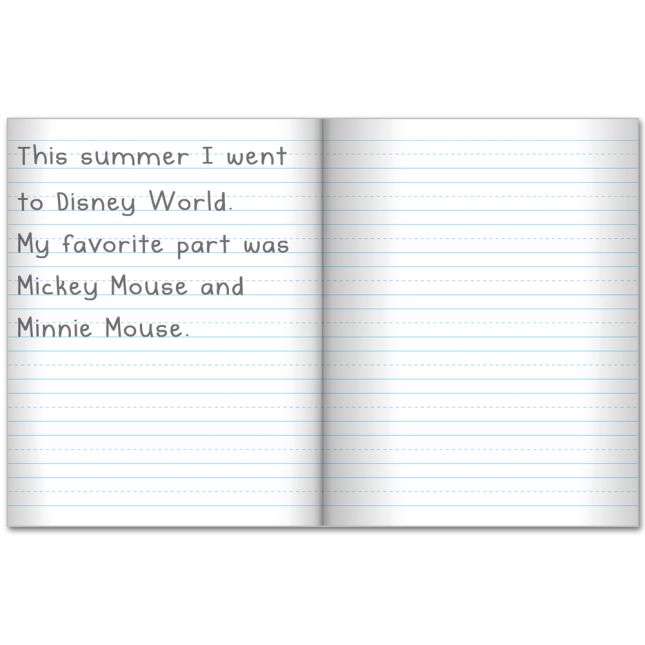 This summer I went
to Disney World.
My favorite part was
Mickey Mouse and
Minnie Mouse.